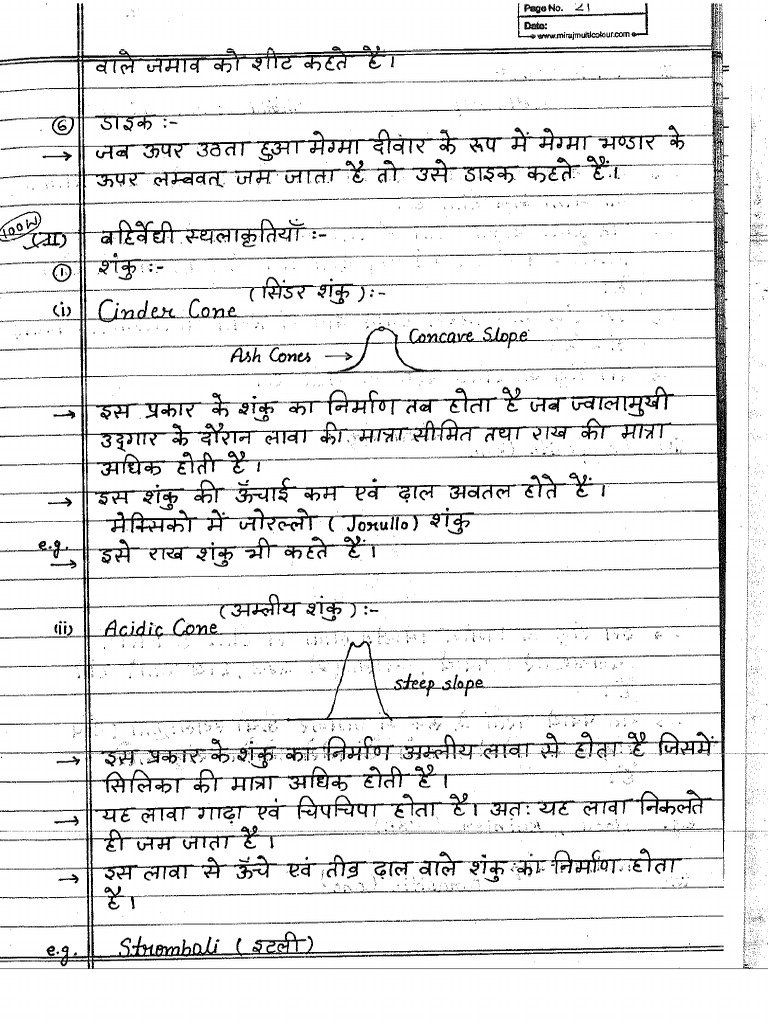 Page No. 21
Date:
www.mirajmulticolour.com
वाले जमाव को शीट कहते हैं।
⑥ डाइक :-
→ जब ऊपर उठता हुआ मेग्मा दीवार के रूप में मेग्मा भण्डार के
ऊपर लम्बवत् जम जाता है तो उसे डाइक कहते हैं।
100W
(II) बहिर्वेधी स्थलाकृतियाँ :-
① शंकु :-
(सिंडर शंकु) :-
(i) Cinder Cone
Concave Slope
Ash Cones →
→ इस प्रकार के शंकु का निर्माण तब होता है जब ज्वालामुखी
उद्गार के दौरान लावा की मात्रा सीमित तथा राख की मात्रा
अधिक होती है।
→ इस शंकु की ऊँचाई कम एवं ढ़ाल अवतल होते हैं।
e.g. मेक्सिको में जोरल्लो (Jorullo) शंकु
→ इसे राख शंकु भी कहते हैं।
(अम्लीय शंकु) :-
(ii) Acidic Cone
steep slope
→ इस प्रकार के शंकु का निर्माण अम्लीय लावा से होता है जिसमें
सिलिका की मात्रा अधिक होती है।
→ यह लावा गाढ़ा एवं चिपचिपा होता है। अतः यह लावा निकलते
ही जम जाता है।
→ इस लावा से ऊँचे एवं तीव्र ढ़ाल वाले शंकु का निर्माण होता
है।
e.g. Strombali (इटली)